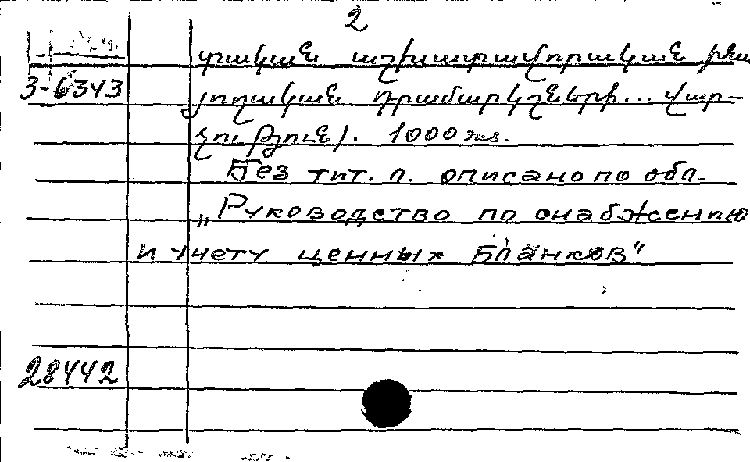 2
տրական աշխատավորական
3-6343
յողական դրամարկղների... վար-
չություն). 1000 экз.
Без тит. л. описано по обл.
„Руководство по снабжению
и учету ценных бланков"
28442